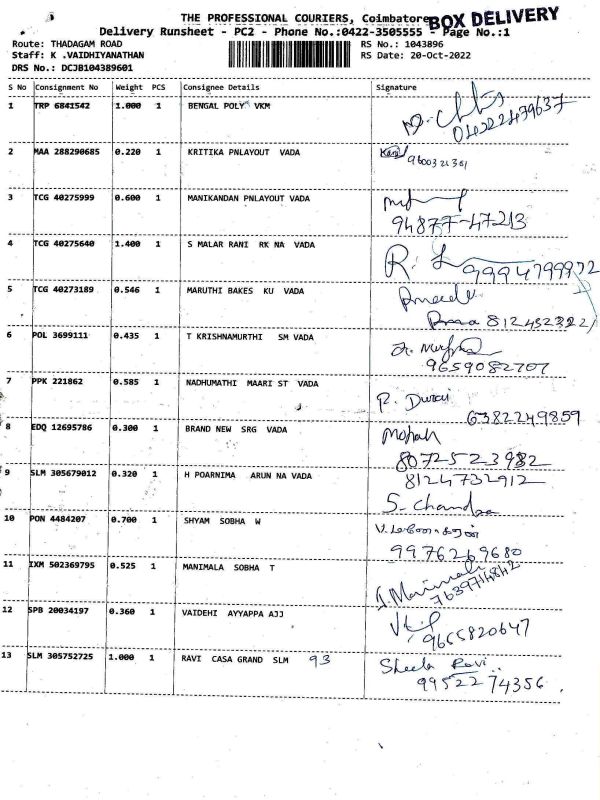 THE PROFESSIONAL COURIERS, Coimbatore
BOX DELIVERY
Delivery Runsheet - PC2 - Phone No.:0422-3505555 - Page No.:1
Route: THADAGAM ROAD
RS No.: 1043896
Staff: K .VAIDHIYANATHAN
RS Date: 20-Oct-2022
DRS No.: DCJB104389601
S No Consignment No Weight PCS Consignee Details Signature
1 TRP 6841542 1.000 1 BENGAL POLY VKM
04222479637
2 MAA 288290685 0.220 1 KRITIKA PNLAYOUT VADA
3 TCG 40275999 0.600 1 MANIKANDAN PNLAYOUT VADA
94877-47213
4 TCG 40275640 1.400 1 S MALAR RANI RK NA VADA
9994799972
5 TCG 40273189 0.546 1 MARUTHI BAKES KU VADA
6 POL 3699111 0.435 1 T KRISHNAMURTHI SM VADA
9659082707
7 PPK 221862 0.585 1 NADHUMATHI MAARI ST VADA
P. Durai
6382249859
8 EDQ 12695786 0.300 1 BRAND NEW SRG VADA
Mohan
8072523982
9 SLM 305679012 0.320 1 H POARNIMA ARUN NA VADA
8124732912
S. Chandra
10 PON 4484207 0.700 1 SHYAM SOBHA W
9976269680
11 IXM 502369795 0.525 1 MANIMALA SOBHA T
7639714842
12 SPB 20034197 0.360 1 VAIDEHI AYYAPPA AJJ
9655820647
13 SLM 305752725 1.000 1 RAVI CASA GRAND SLM 93
Sheela Ravi
99522 74356